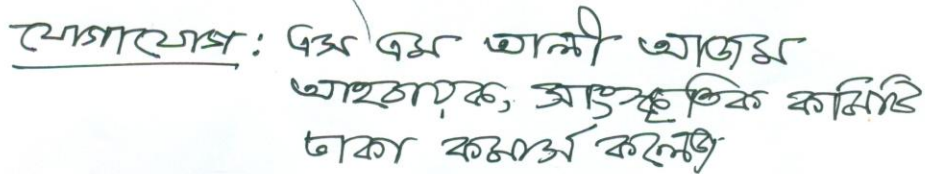 যোগাযোগ: এস এম আলী আজম
আহবায়ক, সাংস্কৃতিক কমিটি
ঢাকা কমার্স কলেজ